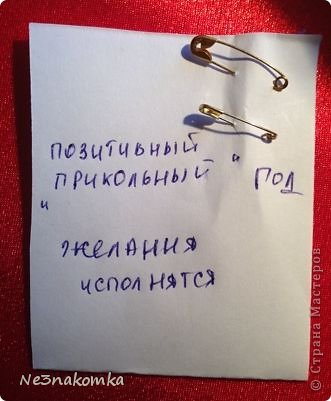 ПОЗИТИВНЫЙ
ПРИКОЛЬНЫЙ " ПОД
"
ЖЕЛАНИЯ
ИСПОЛНЯТСЯ
Ne3nakomka
© Страна Мастеров